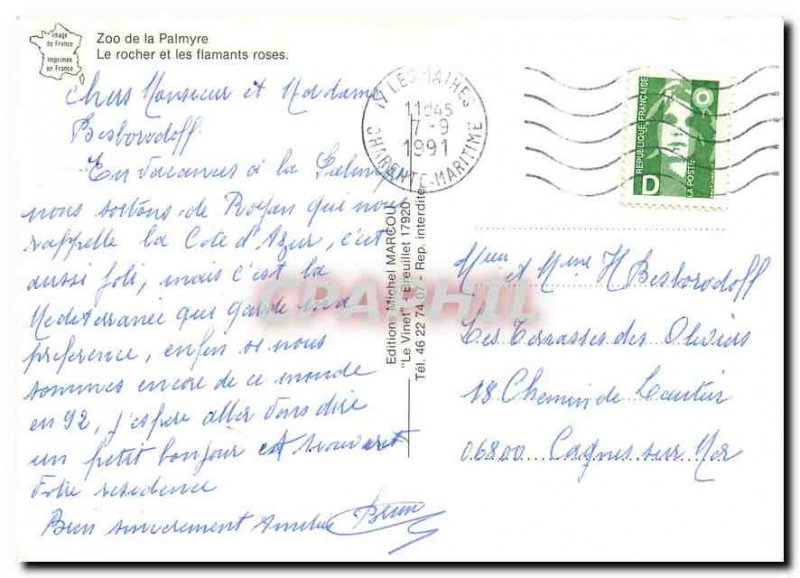 Image
de France
Imprimée
en France
Zoo de la Palmyre
Le rocher et les flamants roses.
Chers Monsieur et Madame
Besborodoff
En vacances à la Palmyre
nous sortons de Royan qui nous
rappelle la Cote d'Azur, c'est
aussi joli, mais c'est la
Mediterranée qui garde ma
preference, enfin si nous
sommes encore de ce monde
en 92, j'espere aller vous dire
un petit bonjour et
votre residence
Bien sincerement
17 LES MATHES
11H45
7-9
1991
CHARENTE-MARITIME
REPUBLIQUE FRANÇAISE
D
LA POSTE
Editions Michel MARCOU
"Le Vinet" - Breuillet 17920
Tél. 46 22 74 07 - Rep. interdite
CPAPHIL
et Mme H Besborodoff
Les Terrasses des Oliviers
18 Chemin de
06800 Cagnes sur Mer